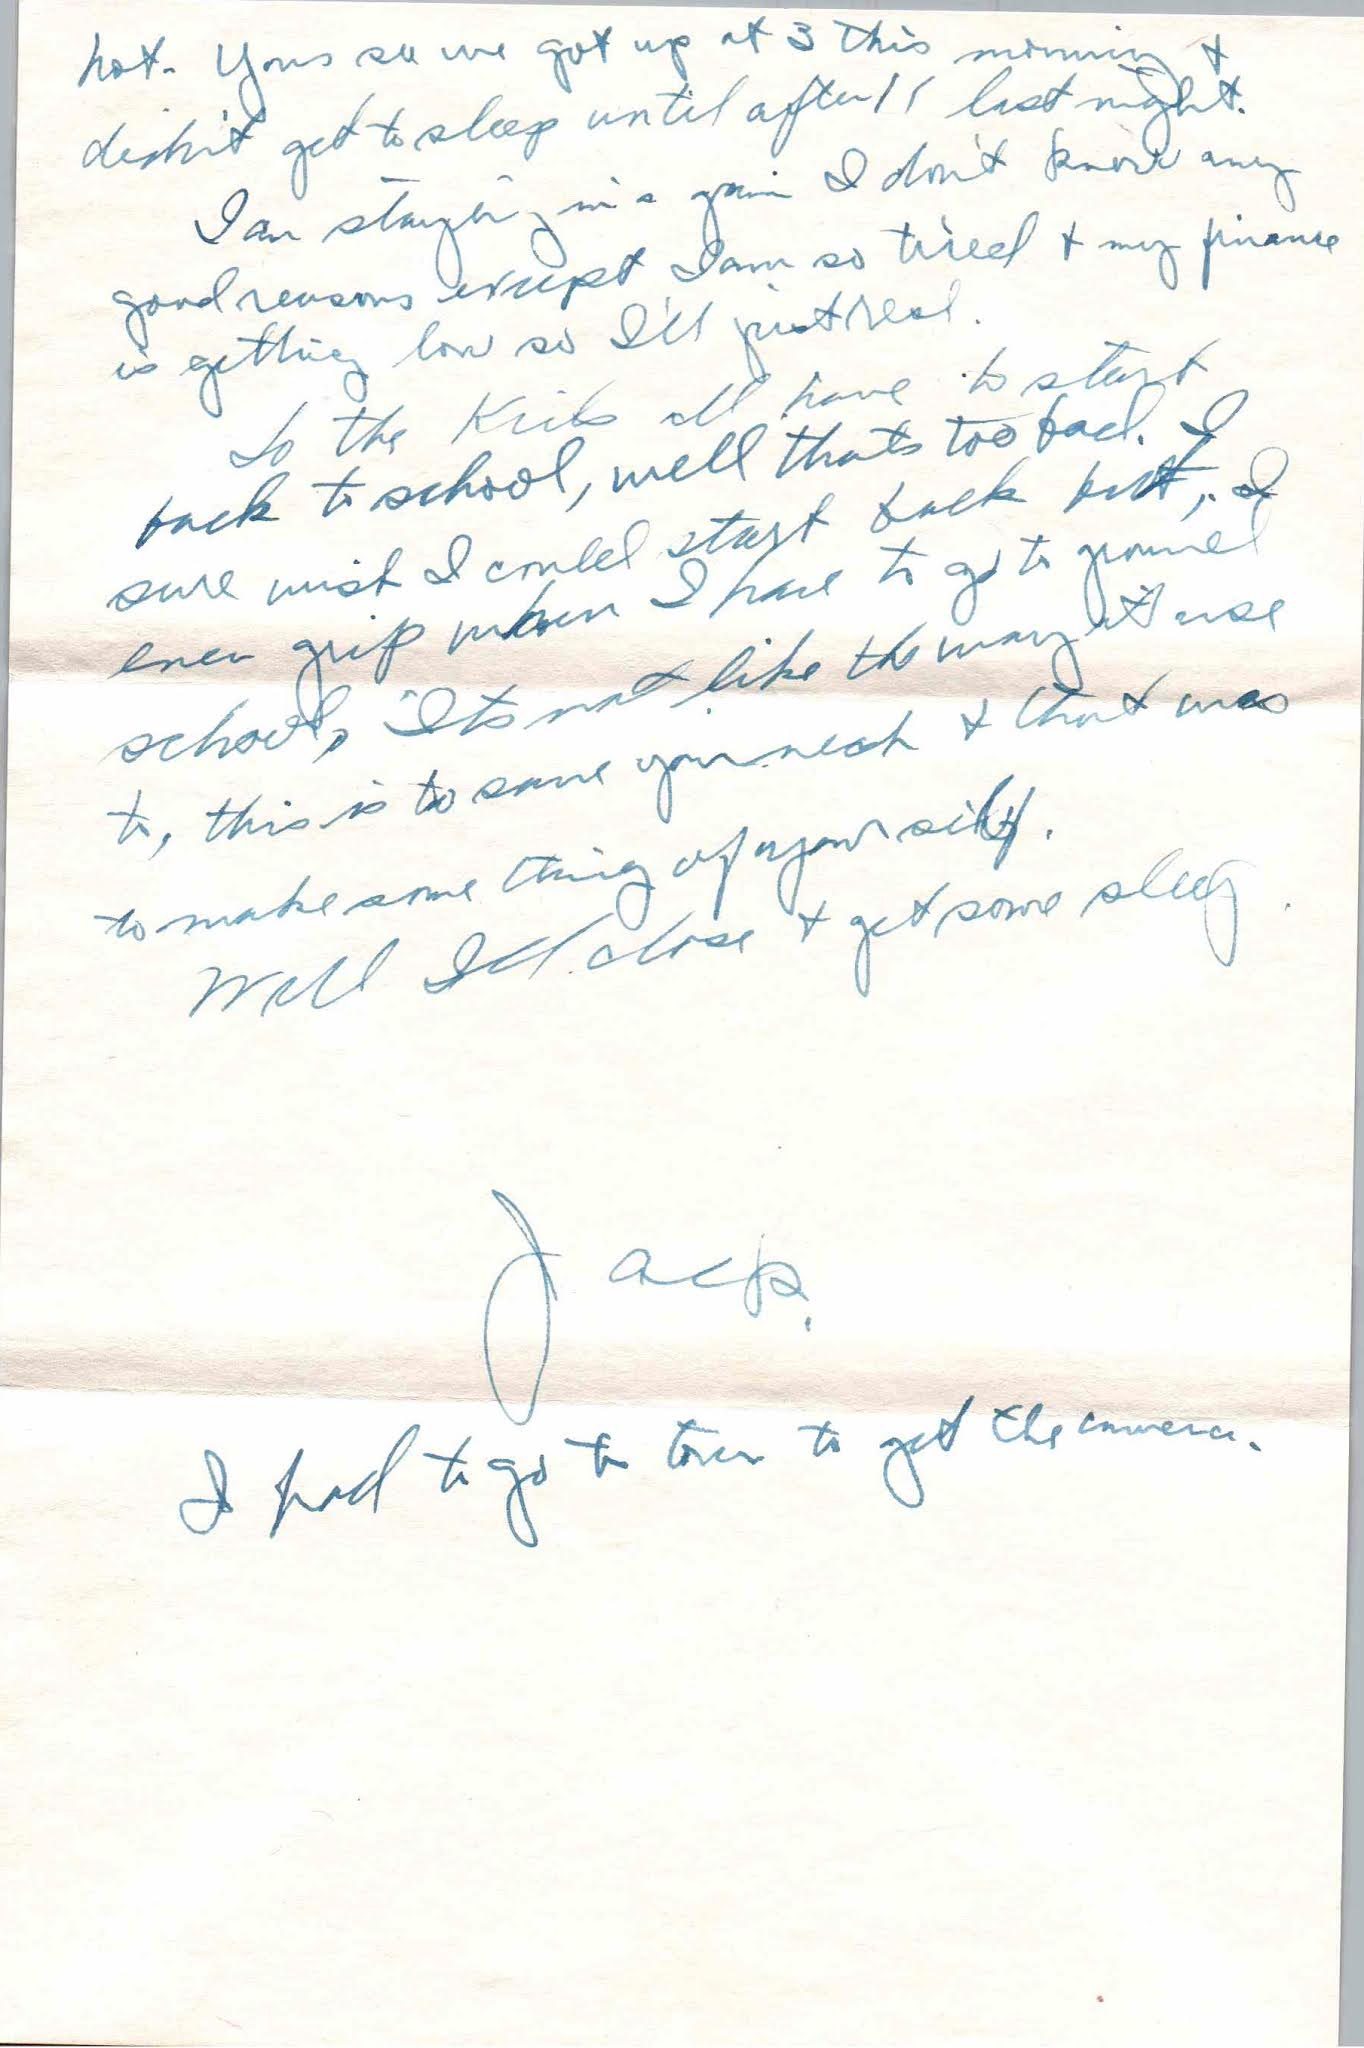 hot. Yous see we got up at 3 this morning &
didn't get to sleep until after 11 last night.
I am staying in a gain I don't know any
good reasons except I am so tired & my finance
is getting low so I'll just rest.
So the Kids all have to start
back to school, well thats too bad. I
sure wish I could start back but, I
even grip when I have to go to ground
school, Its not like the way it use
to, this is to save your neck & that was
to make some thing of your self.
Well I'll close & get some sleep.
Jack.
I had to go to town to get the camera.